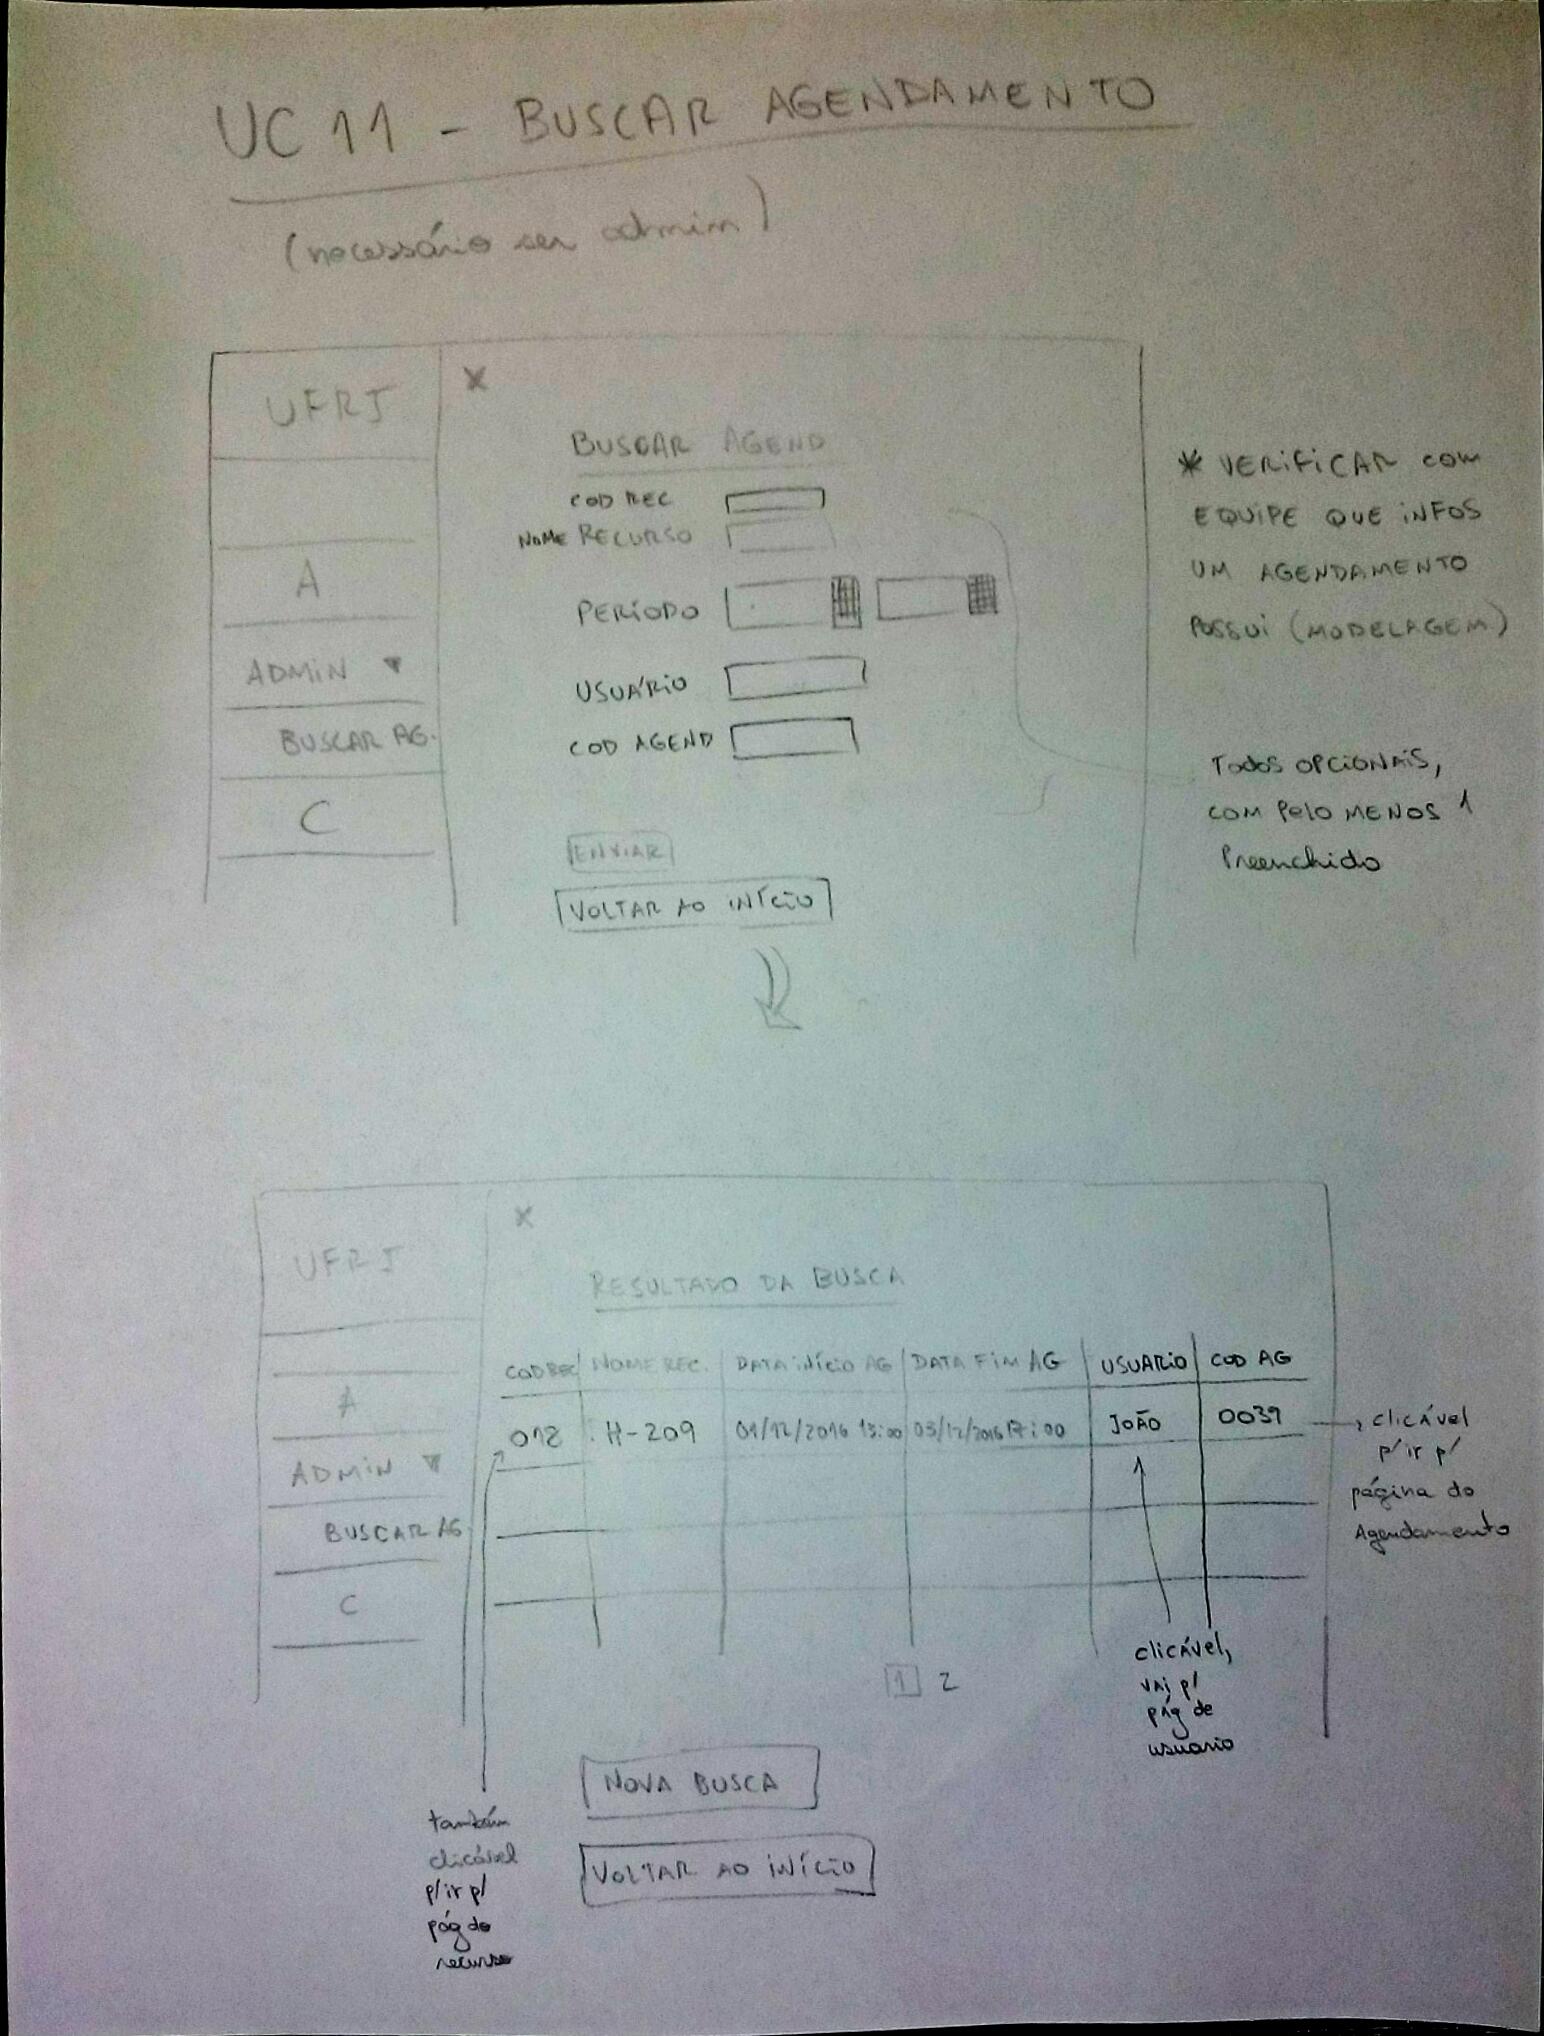 UC 11 - BUSCAR AGENDAMENTO
(necessário ser admim)
UFRJ
X
A
ADMIN ▼
BUSCAR AG.
C
BUSCAR AGEND
COD REC
NOME RECURSO
PERÍODO
USUÁRIO
COD AGEND
ENVIAR
VOLTAR AO INÍCIO
* VERIFICAR COM
EQUIPE QUE INFOS
UM AGENDAMENTO
POSSUI (MODELAGEM)
Todos OPCIONAIS,
COM Pelo MENOS 1
Preenchido
UFRJ
X
A
ADMIN ▼
BUSCAR AG
C
RESULTADO DA BUSCA
COD REC NOME REC. DATA INÍCIO AG DATA FIM AG USUARIO COD AG
012 H-209 01/12/2016 13:00 03/12/2016 17:00 JOÃO 0039
clicável
p/ ir p/
página do
Agendamento
clicável,
vai p/
pág de
usuario
1 2
NOVA BUSCA
VOLTAR AO INÍCIO
também
clicável
p/ ir p/
pág do
recurso